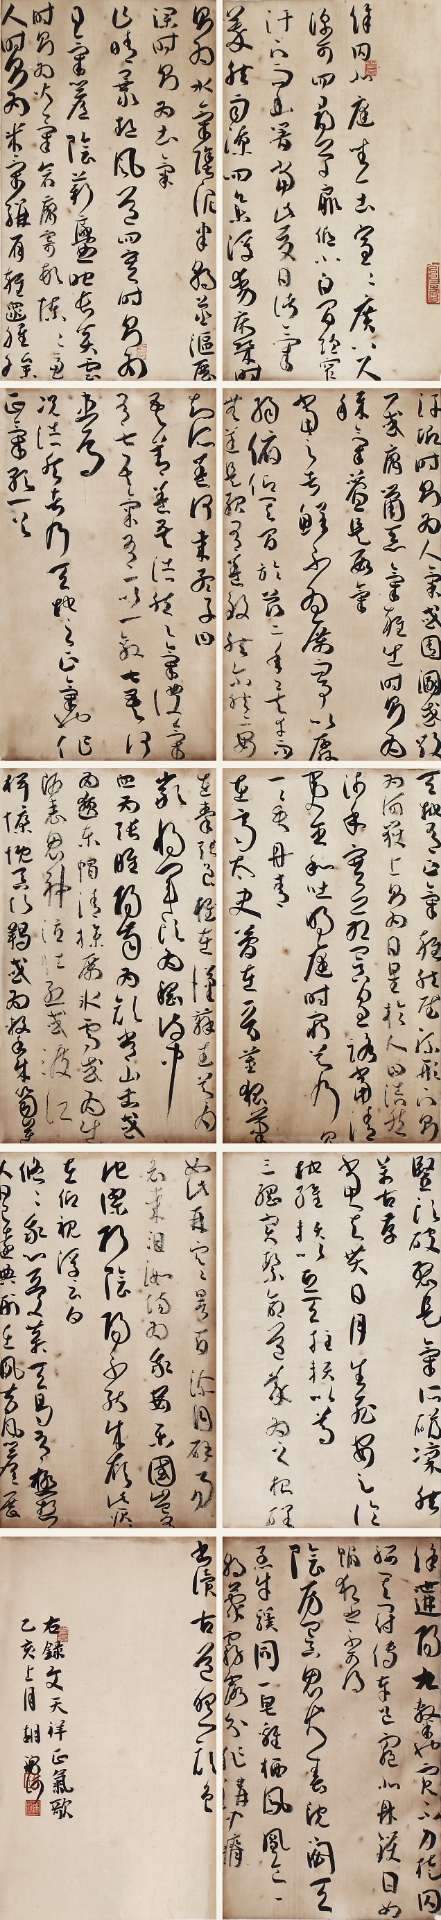 余囚北庭坐一土室室廣八尺
深可四尋單扉低小白間短窄
汙下而幽暗當此夏日諸氣
萃然雨潦四集浮動床几時
則為水氣塗泥半朝蒸漚歷
瀾時則為土氣
乍晴暴熱風道四塞時則為
日氣簷陰薪爨助長炎虐
時則為火氣倉腐寄頓陳陳逼
人時則為米氣駢肩雜遝腥臊
汗垢時則為人氣或圊溷或毀
尸或腐鼠惡氣雜出時則為
穢氣疊是數氣
當之者鮮不為厲而予以孱
弱俯仰其間於茲二年矣幸而
無恙是殆有養致然亦然安
知所養何哉孟子曰
吾善養吾浩然之氣彼氣
有七吾氣有一以一敵七吾何
患焉
況浩然者乃天地之正氣也作
正氣歌一首
天地有正氣雜然賦流形下則
為河嶽上則為日星於人曰浩然
沛乎塞蒼冥皇路當清
夷含和吐明庭時窮節乃見
一一垂丹青
在齊太史簡在晉董狐筆
在秦張良椎在漢蘇武節為
嚴將軍頭為嵇侍中
血為張睢陽齒為顏常山舌或
為遼東帽清操厲冰雪或為出
師表鬼神泣壯烈或為渡江
楫慷慨吞胡羯或為擊賊笏逆
豎頭破裂是氣所磅礴凜烈
萬古存
當其貫日月生死安足論
地維賴以立天柱賴以尊
三綱實繫命道義為之根嗟
余遘陽九隸也實不力楚囚
纓其冠傳車送窮北鼎鑊甘如
飴求之不可得
陰房闃鬼火春院閟天
黑牛驥同一皂雞棲鳳凰食一
朝蒙霧露分作溝中瘠
如此再寒暑百沴自辟易
哀哉沮洳場為我安樂國豈有
他繆巧陰陽不能賊顧此耿耿
在仰視浮雲白
悠悠我心悲蒼天曷有極哲
人日已遠典刑在夙昔風簷展
書讀古道照顏色
右錄文天祥正氣歌
乙亥上月胡